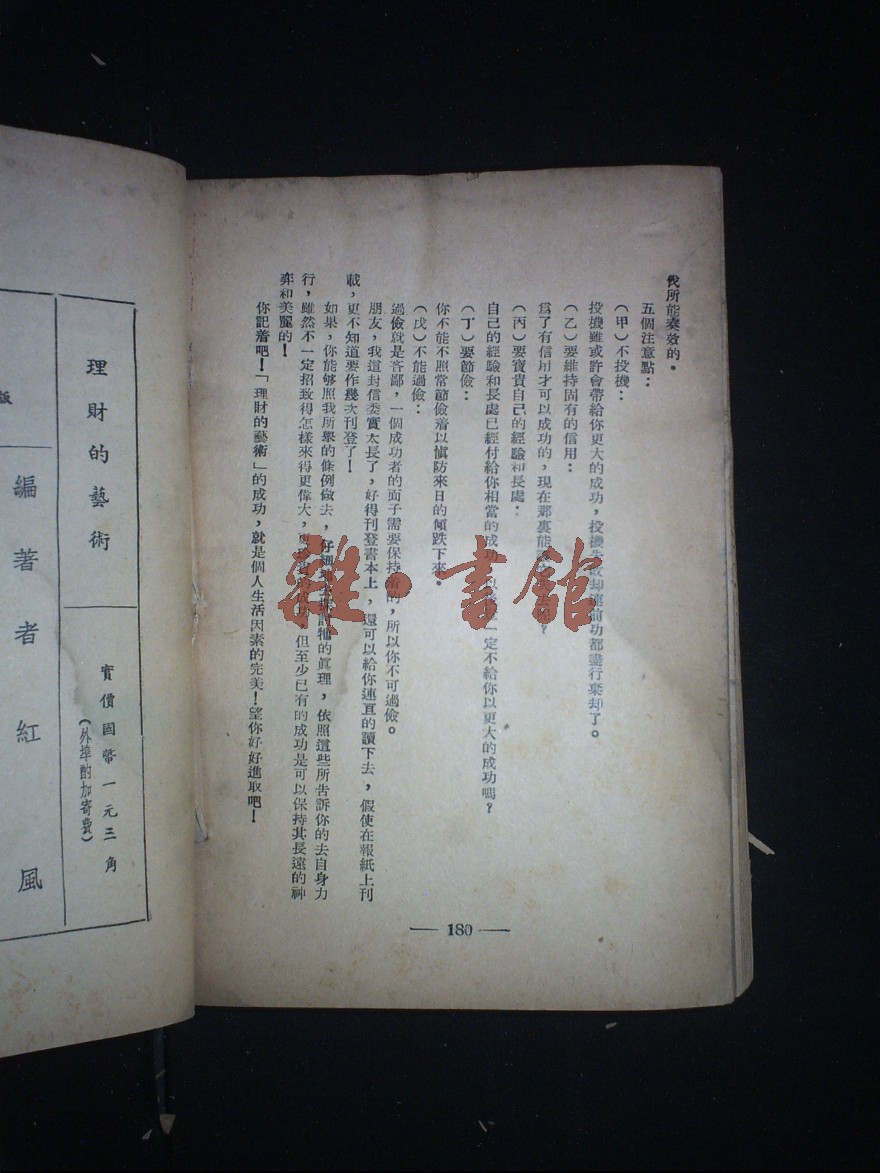 伐所能奏效的。
五個注意點：
（甲）不投機：
投機雖或許會帶給你更大的成功，投機失敗却連前功都盡行棄却了。
（乙）要維持固有的信用：
爲了有信用才可以成功的，現在那裏能
（丙）要寶貴自己的經驗和長處：
自己的經驗和長處已經付給你相當的成功 以 一定不給你以更大的成功嗎？
（丁）要節儉：
你不能不照常節儉着以慎防來日的傾跌下來。
（戊）不能過儉：
過儉就是吝鄙，一個成功者的面子需要保持着的，所以你不可過儉。
朋友，我這封信委實太長了，好得刊登書本上，還可以給你連亘的讀下去，假使在報紙上刊
載，更不知道要作幾次刊登了！
如果，你能够照我所舉的條例做去，仔細 牠的眞理，依照這些所告訴你的去自身力
行，雖然不一定招致得怎樣來得更偉大，更 的成功，但至少已有的成功是可以保持其長遠的神
奕和美麗的！
你記着吧！「理財的藝術」的成功，就是個人生活因素的完美！望你好好進取吧！
— 180 —
雜·書館
理財的藝術
實價國幣一元三角
（外埠酌加寄費）
版
編著者 紅風